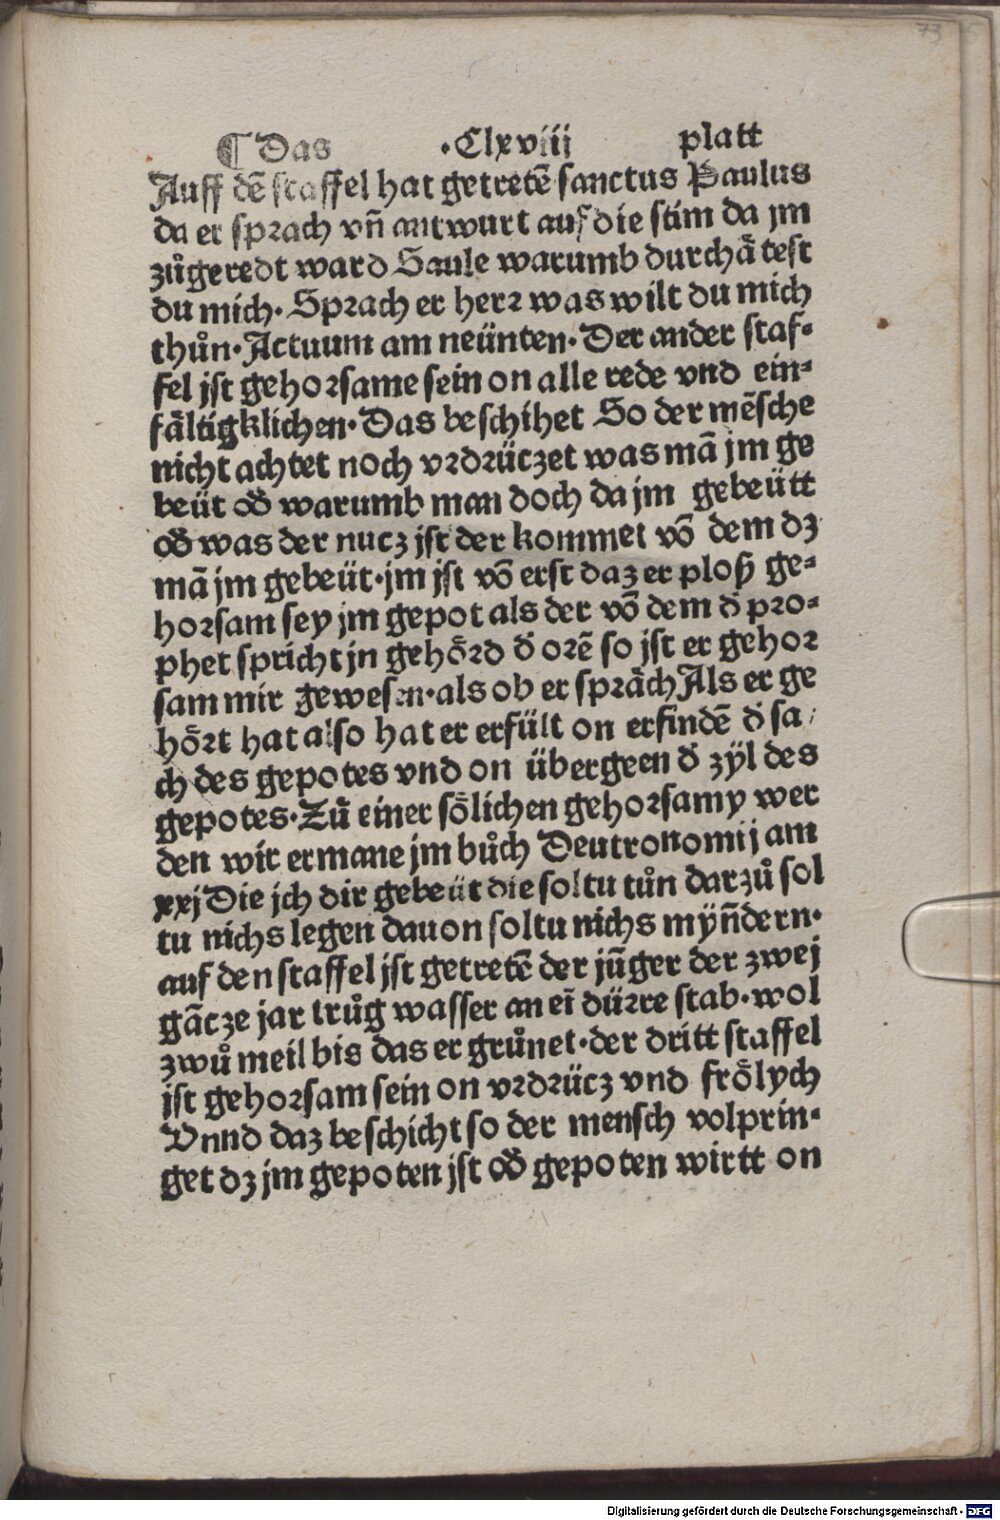 73
¶ Das .Clxviii platt
Auff dē staffel hat getretē sanctus Paulus
da er sprach vn̄ antwurt auf die stim da jm
zůgeredt ward Saule warumb durchåtest
du mich. Sprach er herr was wilt du mich
thůn. Actuum am neünten. Der ander staf⸗
fel jst gehorsame sein on alle rede vnd ein⸗
fåltigklichen. Das beschihet So der mēsche
nicht achtet noch vrdrüczet was mā jm ge
beüt oð warumb man doch da jm gebeütt
oð was der nucz jst der kommet vō dem dz
mā jm gebeüt. jm jst vō erst daz er ploß ge⸗
horsam sey jm gepot als der vō dem ð pro⸗
phet spricht jn gehỏrd ð orē so jst er gehor
sam mir gewesen. als ob er språch Als er ge
hỏrt hat also hat er erfült on erfindē ð sa
ch des gepotes vnd on übergeen ð zÿl des
gepotes. Zů einer sỏlichen gehorsamy wer
den wir ermane jm bůch Deutronomij am
xxj Die jch dir gebeüt die soltu tůn darzů sol
tu nichs legen dauon soltu nichs mÿn̄dern.
auf den staffel jst getretē der jūger der zwej
gācze jar trůg wasser an eī dürre stab. wol
zwů meil bis das er grůnet. der dritt staffel
jst gehorsam sein on vrdrücz vnd frỏlych
Vnnd daz beschicht so der mensch volprin⸗
get dz jm gepoten jst oð gepoten wirtt on
Digitalisierung gefördert durch die Deutsche Forschungsgemeinschaft - DFG